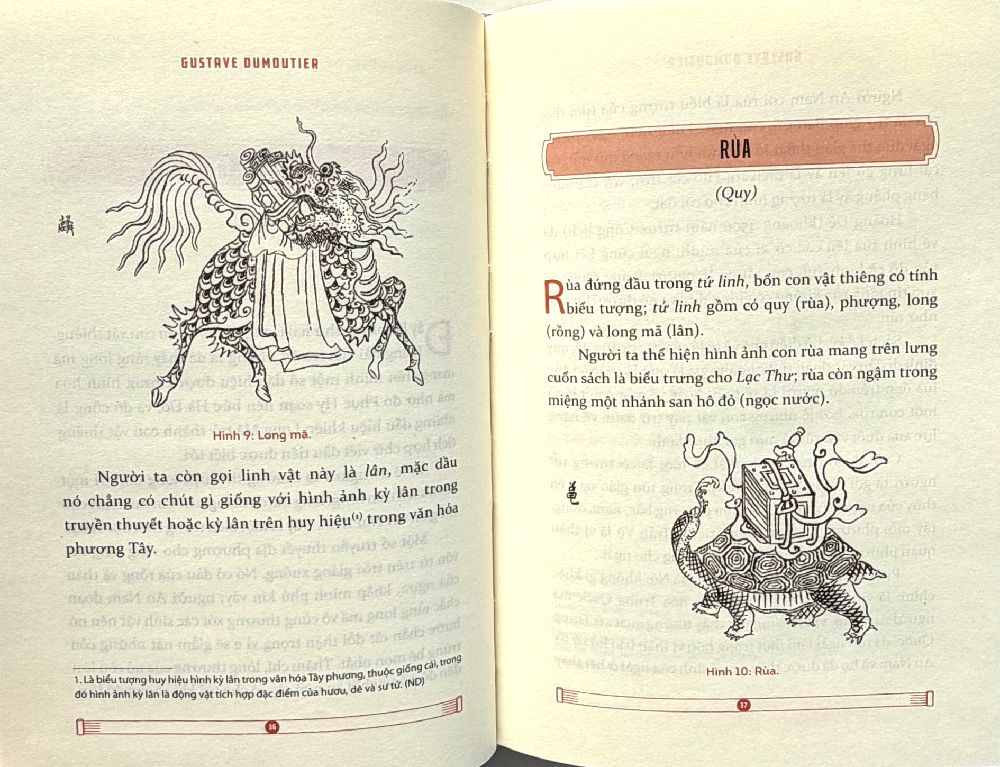 GUSTAVE DUMOUTIER
Hình 9: Long mã.
Người ta còn gọi linh vật này là lân, mặc dầu
nó chẳng có chút gì giống với hình ảnh kỳ lân trong
truyền thuyết hoặc kỳ lân trên huy hiệu⁽¹⁾ trong văn hóa
phương Tây.
1. Là biểu tượng huy hiệu hình kỳ lân trong văn hóa Tây phương, thuộc giống cái, trong
đó hình ảnh kỳ lân là động vật tích hợp đặc điểm của hươu, dê và sư tử. (ND)
36
RÙA
(Quy)
Rùa đứng đầu trong tứ linh, bốn con vật thiêng có tính
biểu tượng; tứ linh gồm có quy (rùa), phượng, long
(rồng) và long mã (lân).
Người ta thể hiện hình ảnh con rùa mang trên lưng
cuốn sách là biểu trưng cho Lạc Thư; rùa còn ngậm trong
miệng một nhánh san hô đỏ (ngọc nước).
Hình 10: Rùa.
37